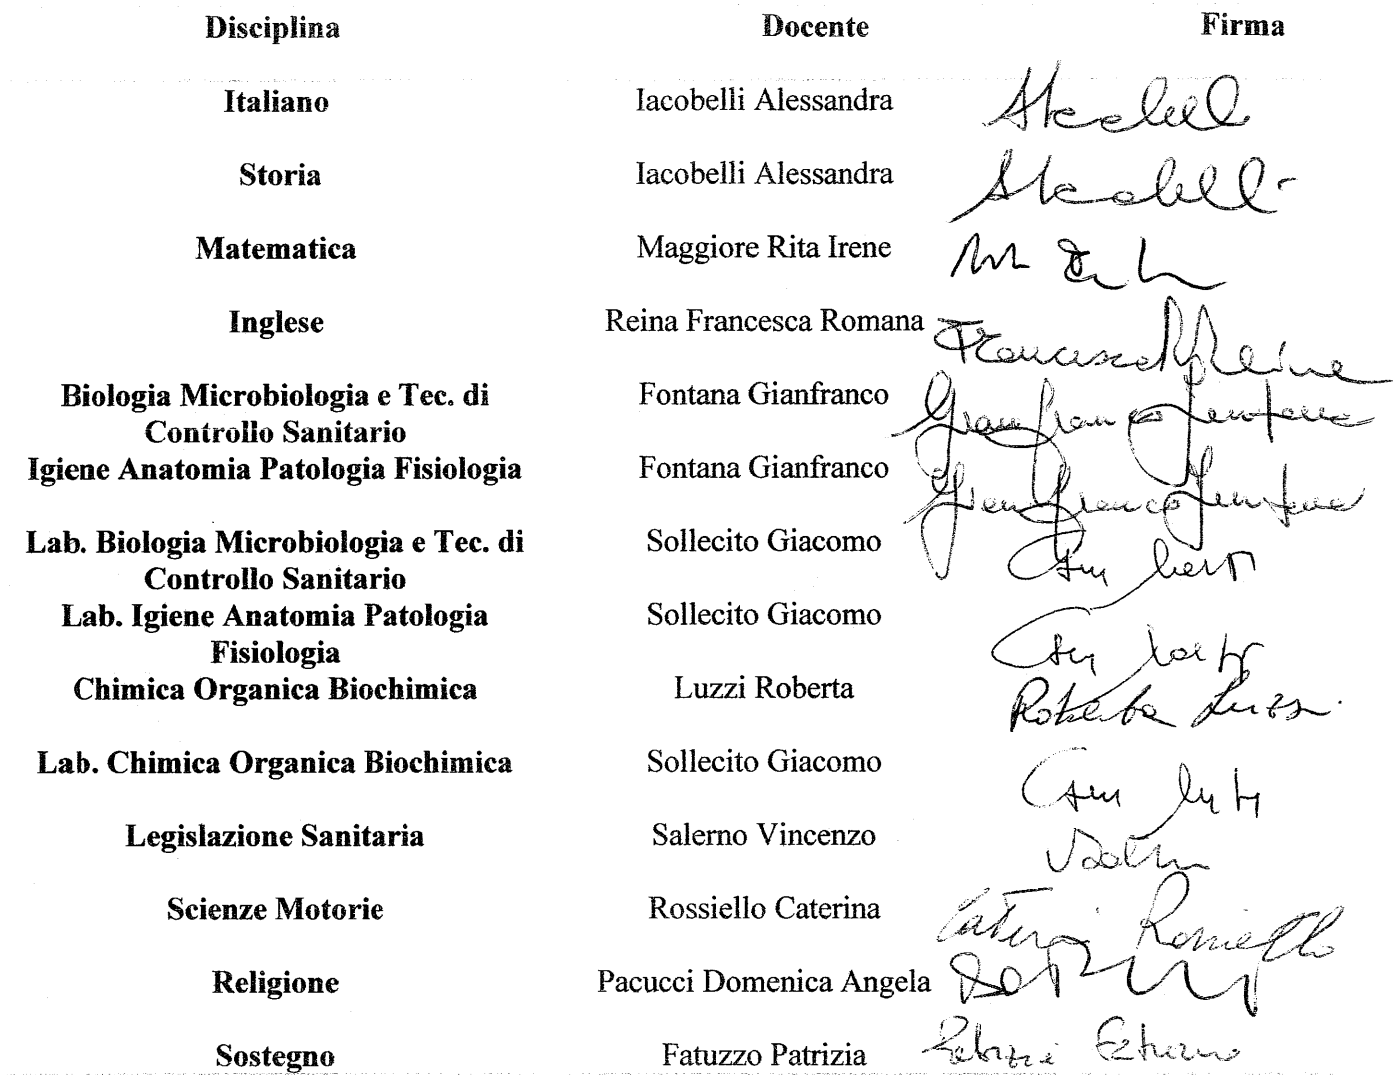 Disciplina Docente Firma
Italiano Iacobelli Alessandra
Storia Iacobelli Alessandra
Matematica Maggiore Rita Irene
Inglese Reina Francesca Romana Francesca R Reina
Biologia Microbiologia e Tec. di Fontana Gianfranco Gianfranco Fontana
Controllo Sanitario
Igiene Anatomia Patologia Fisiologia Fontana Gianfranco Gianfranco Fontana
Lab. Biologia Microbiologia e Tec. di Sollecito Giacomo
Controllo Sanitario
Lab. Igiene Anatomia Patologia Sollecito Giacomo
Fisiologia
Chimica Organica Biochimica Luzzi Roberta Roberta Luzzi
Lab. Chimica Organica Biochimica Sollecito Giacomo
Legislazione Sanitaria Salerno Vincenzo
Scienze Motorie Rossiello Caterina Caterina Rossiello
Religione Pacucci Domenica Angela
Sostegno Fatuzzo Patrizia Patrizia Fatuzzo